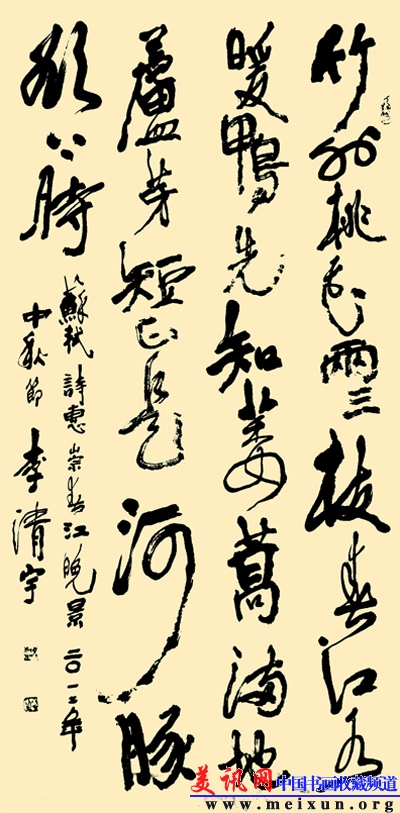 竹外桃花兩三枝春江水
暖鴨先知蔞蒿滿地
蘆芽短正是河豚
欲上時
蘇軾詩惠崇春江晚景二〇一三年
中秋節 李清宇
美讯网 中国书画收藏频道
www.meixun.org